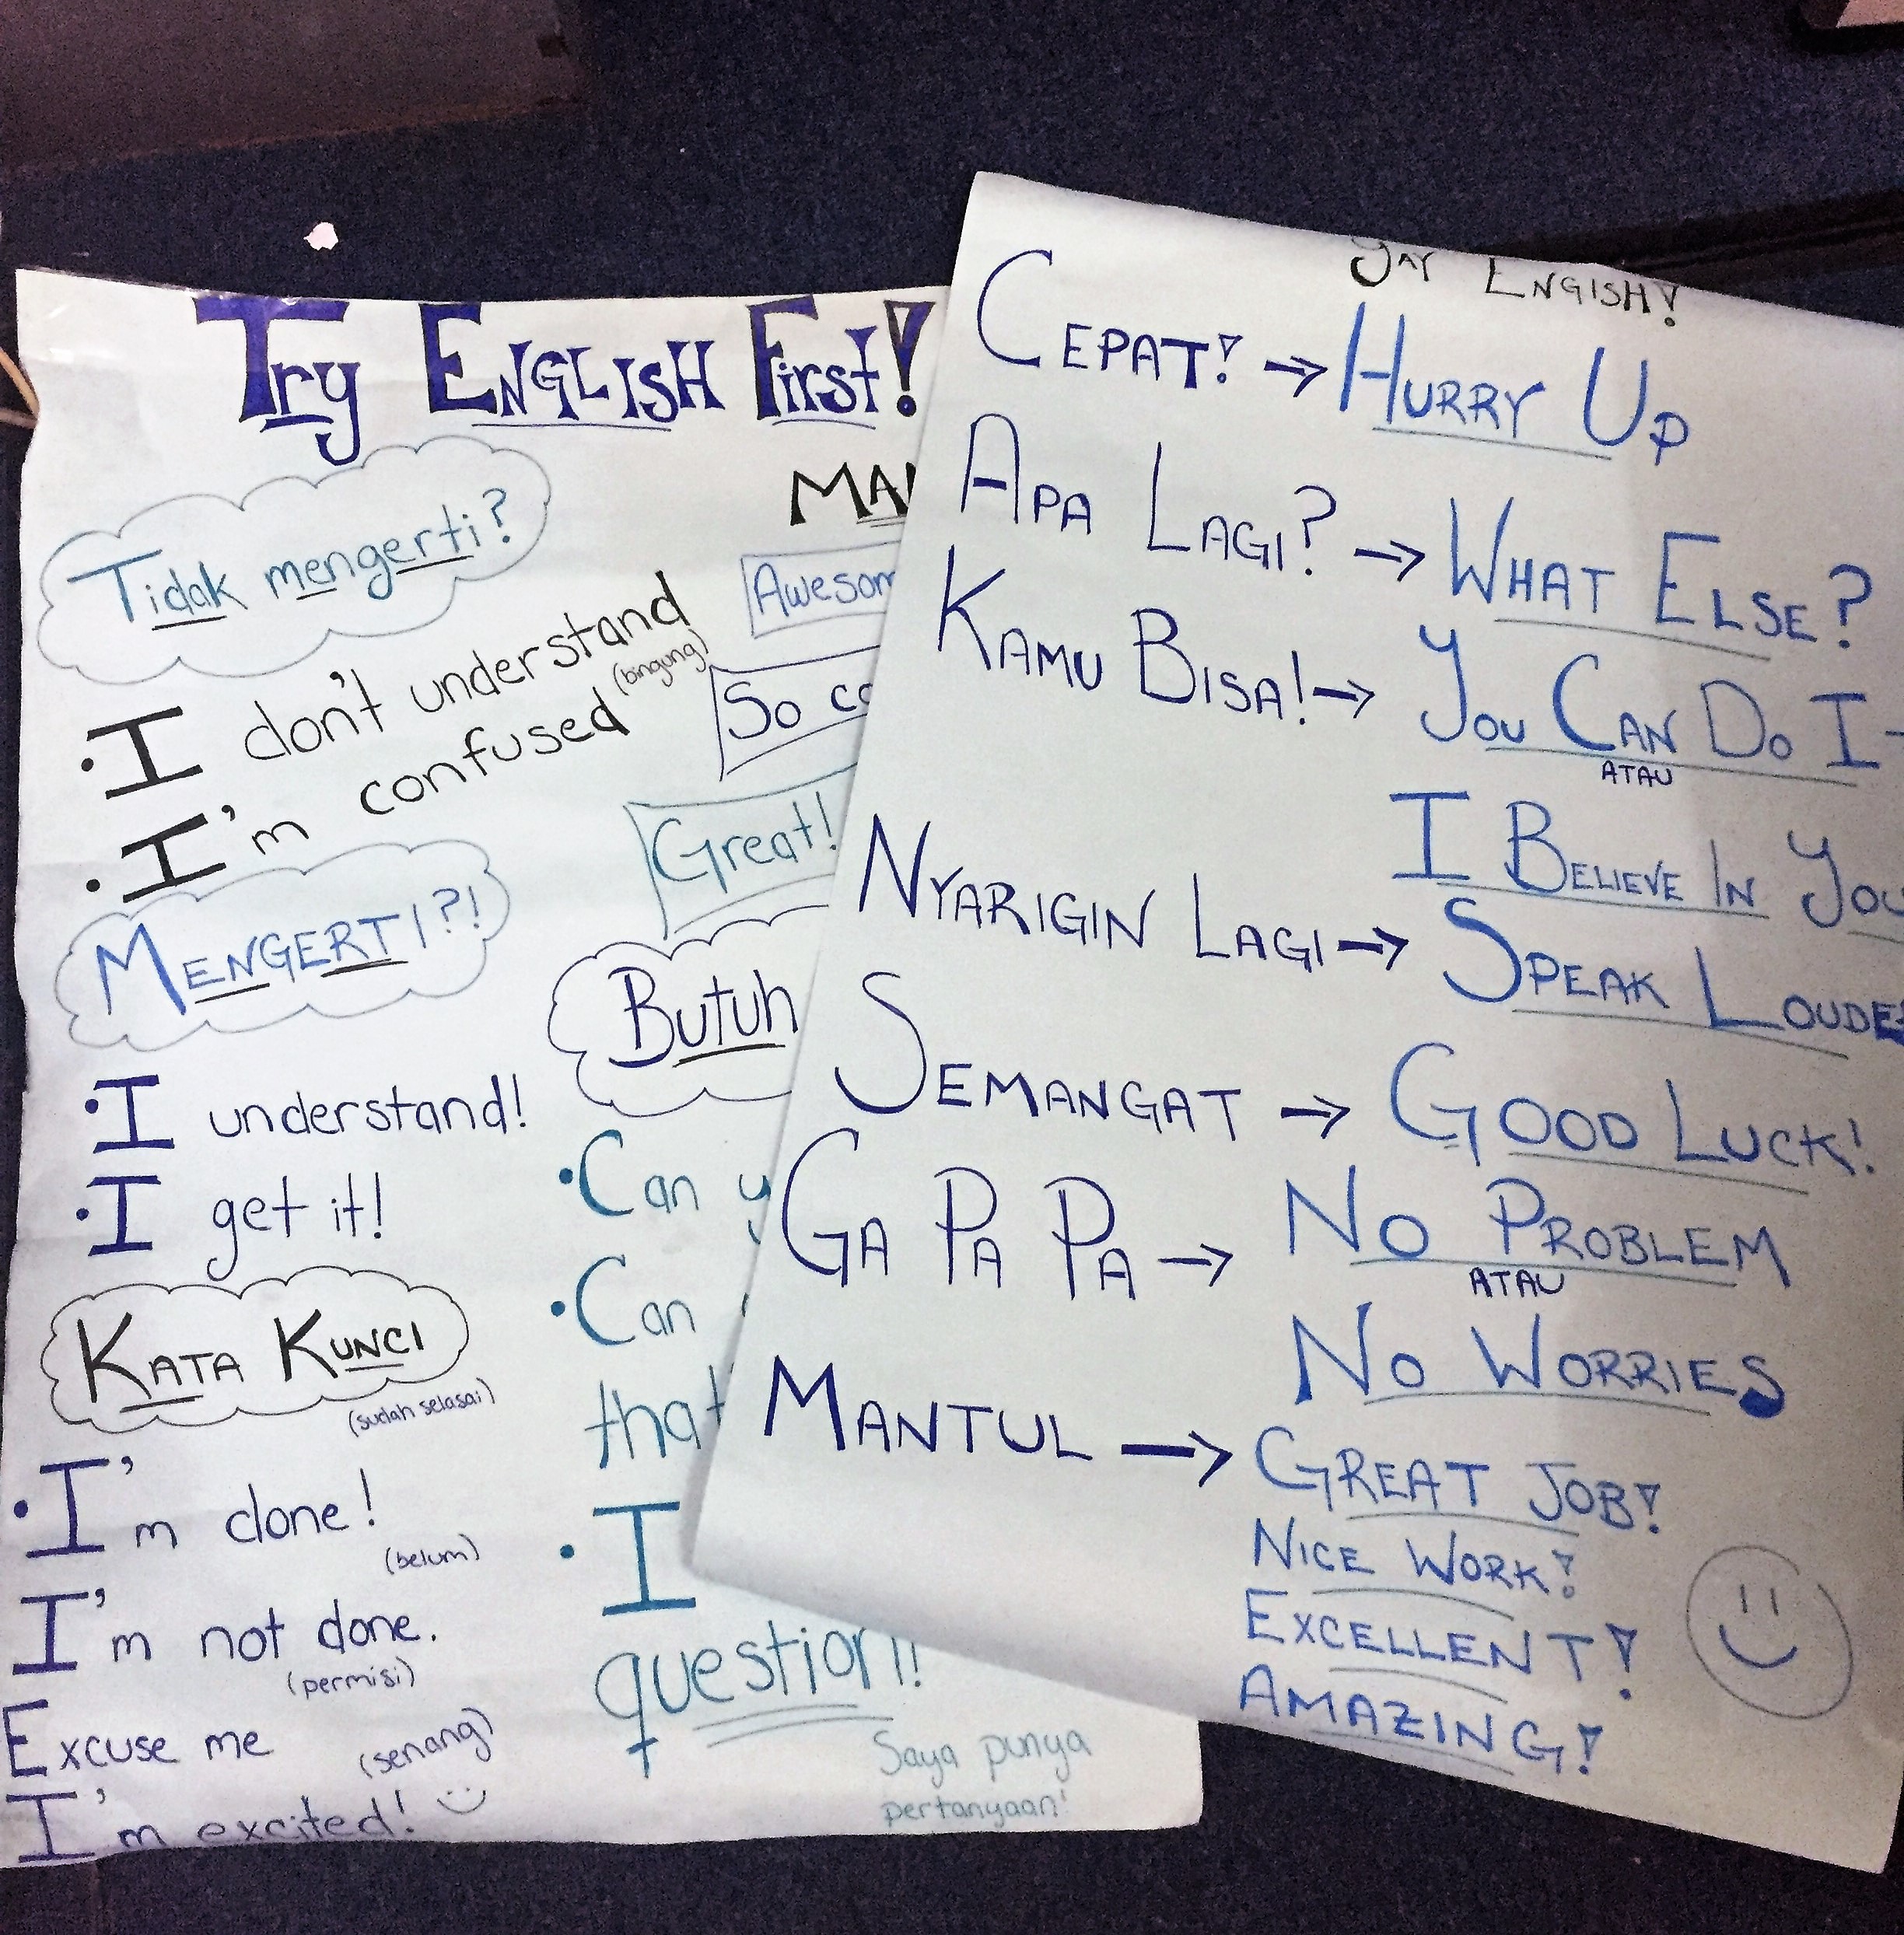 Try English First!
Tidak mengerti?
• I don't understand
(bingung)
• I'm confused
MENGERTI?!
• I understand!
• I get it!
KATA KUNCI
(sudah selasai)
• I'm done!
(belum)
I'm not done.
(permisi)
Excuse me
(senang)
I'm excited!
So
Great!
Butuh
• Can
• Can
that
• I
question!!
Saya punya
pertanyaan!
YAY ENGISH!
CEPAT! → HURRY UP
APA LAGI? → WHAT ELSE?
KAMU BISA! → YOU CAN DO I
ATAU
I BELIEVE IN YOU
NYARIGIN LAGI → SPEAK LOUDE
SEMANGAT → GOOD LUCK!
GA PA PA → NO PROBLEM
ATAU
NO WORRIES
MANTUL → GREAT JOB!
NICE WORK!
EXCELLENT!
AMAZING!